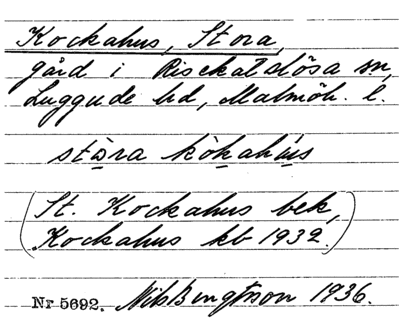 Kockahus, Stora,
gård i Risekatslösa sn,
Luggude hd, Malmöh. l.
stòra kòkahús
(St. Kockahus bek,
Kockahus kb 1932.)
Nr 5692. Nils Bengtsson 1936.